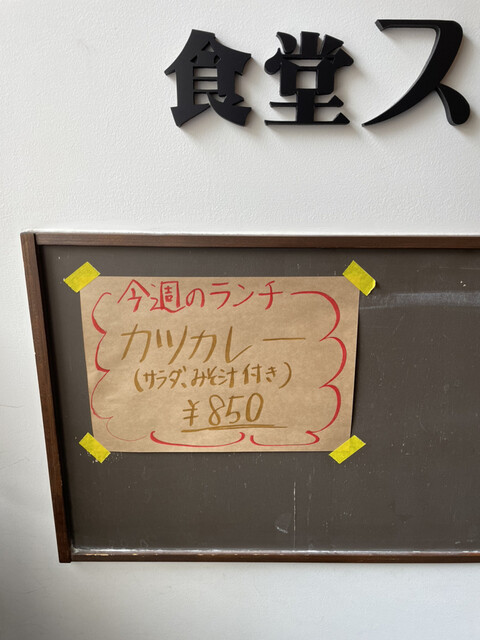 食堂ス
今週のランチ
カツカレー
(サラダ、みそ汁付き)
¥850